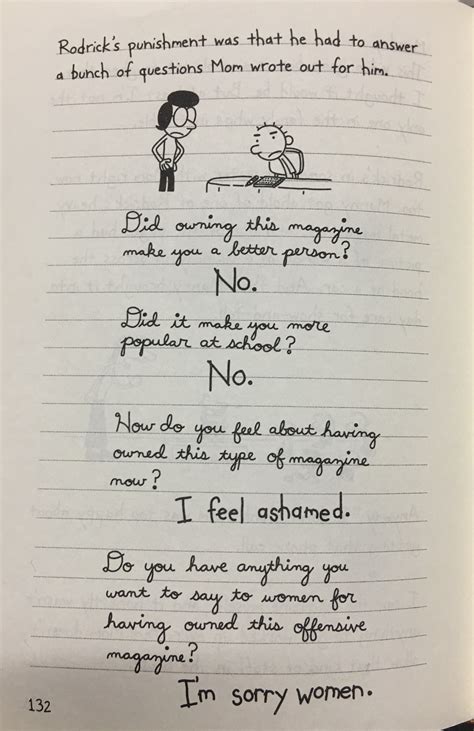 Rodrick's punishment was that he had to answer
a bunch of questions Mom wrote out for him.
Did owning this magazine
make you a better person?
No.
Did it make you more
popular at school?
No.
How do you feel about having
owned this type of magazine
now?
I feel ashamed.
Do you have anything you
want to say to women for
having owned this offensive
magazine?
I'm sorry women.
132